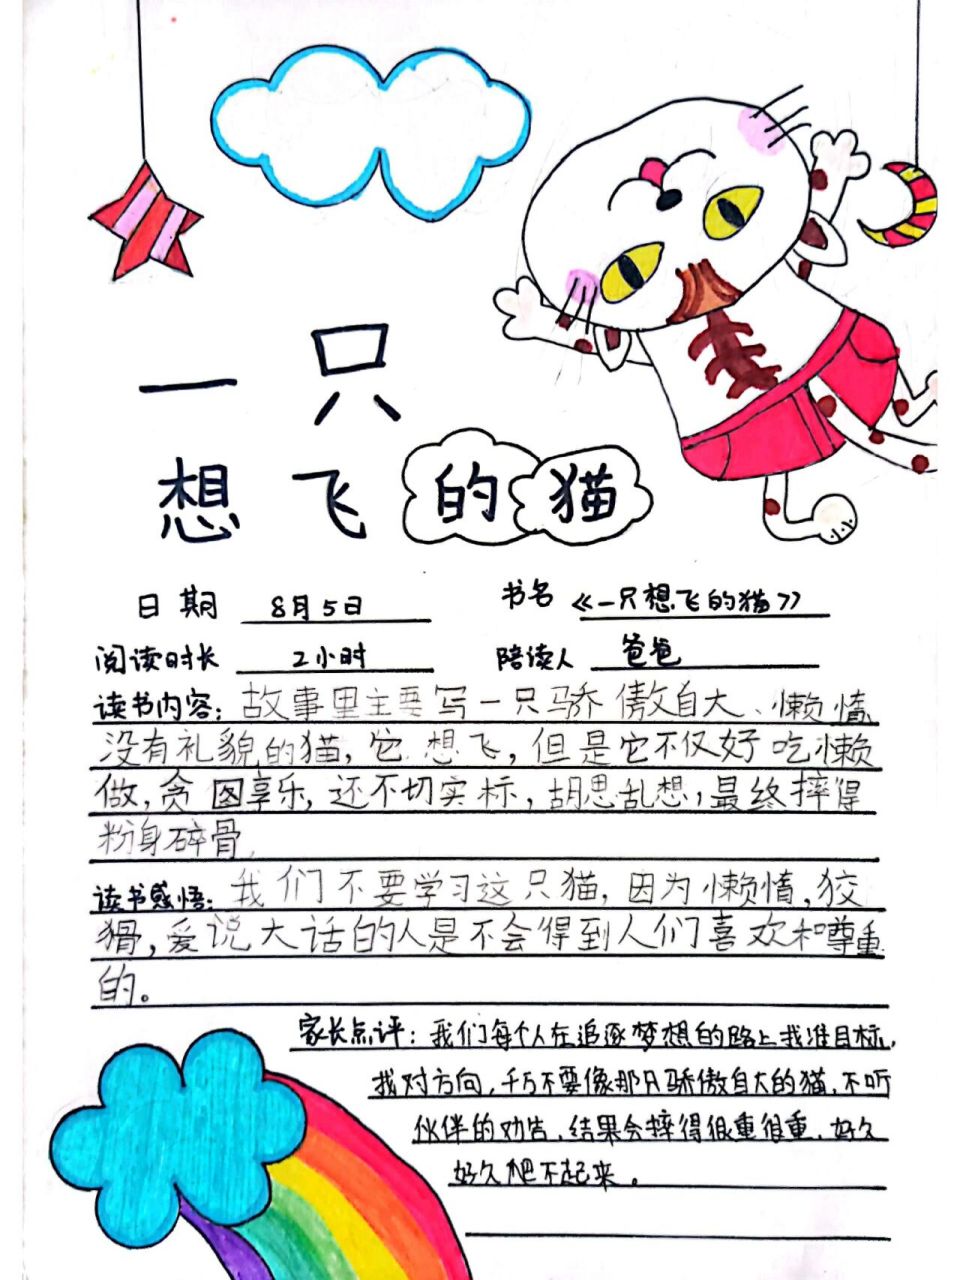 一只
想飞的猫
日期 8月5日 书名 《一只想飞的猫》
阅读时长 2小时 陪读人 爸爸
读书内容：故事里主要写一只骄傲自大、懒惰、
没有礼貌的猫，它想飞，但是它不仅好吃懒
做，贪图享乐，还不切实标，胡思乱想，最终摔得
粉身碎骨。
读书感悟：我们不要学习这只猫，因为懒惰，狡
猾，爱说大话的人是不会得到人们喜欢和尊重
的。
家长点评：我们每个人在追逐梦想的路上找准目标，
找对方向，千万不要像那只骄傲自大的猫，不听
伙伴的劝告，结果会摔得很重很重，好久
好久爬不起来。